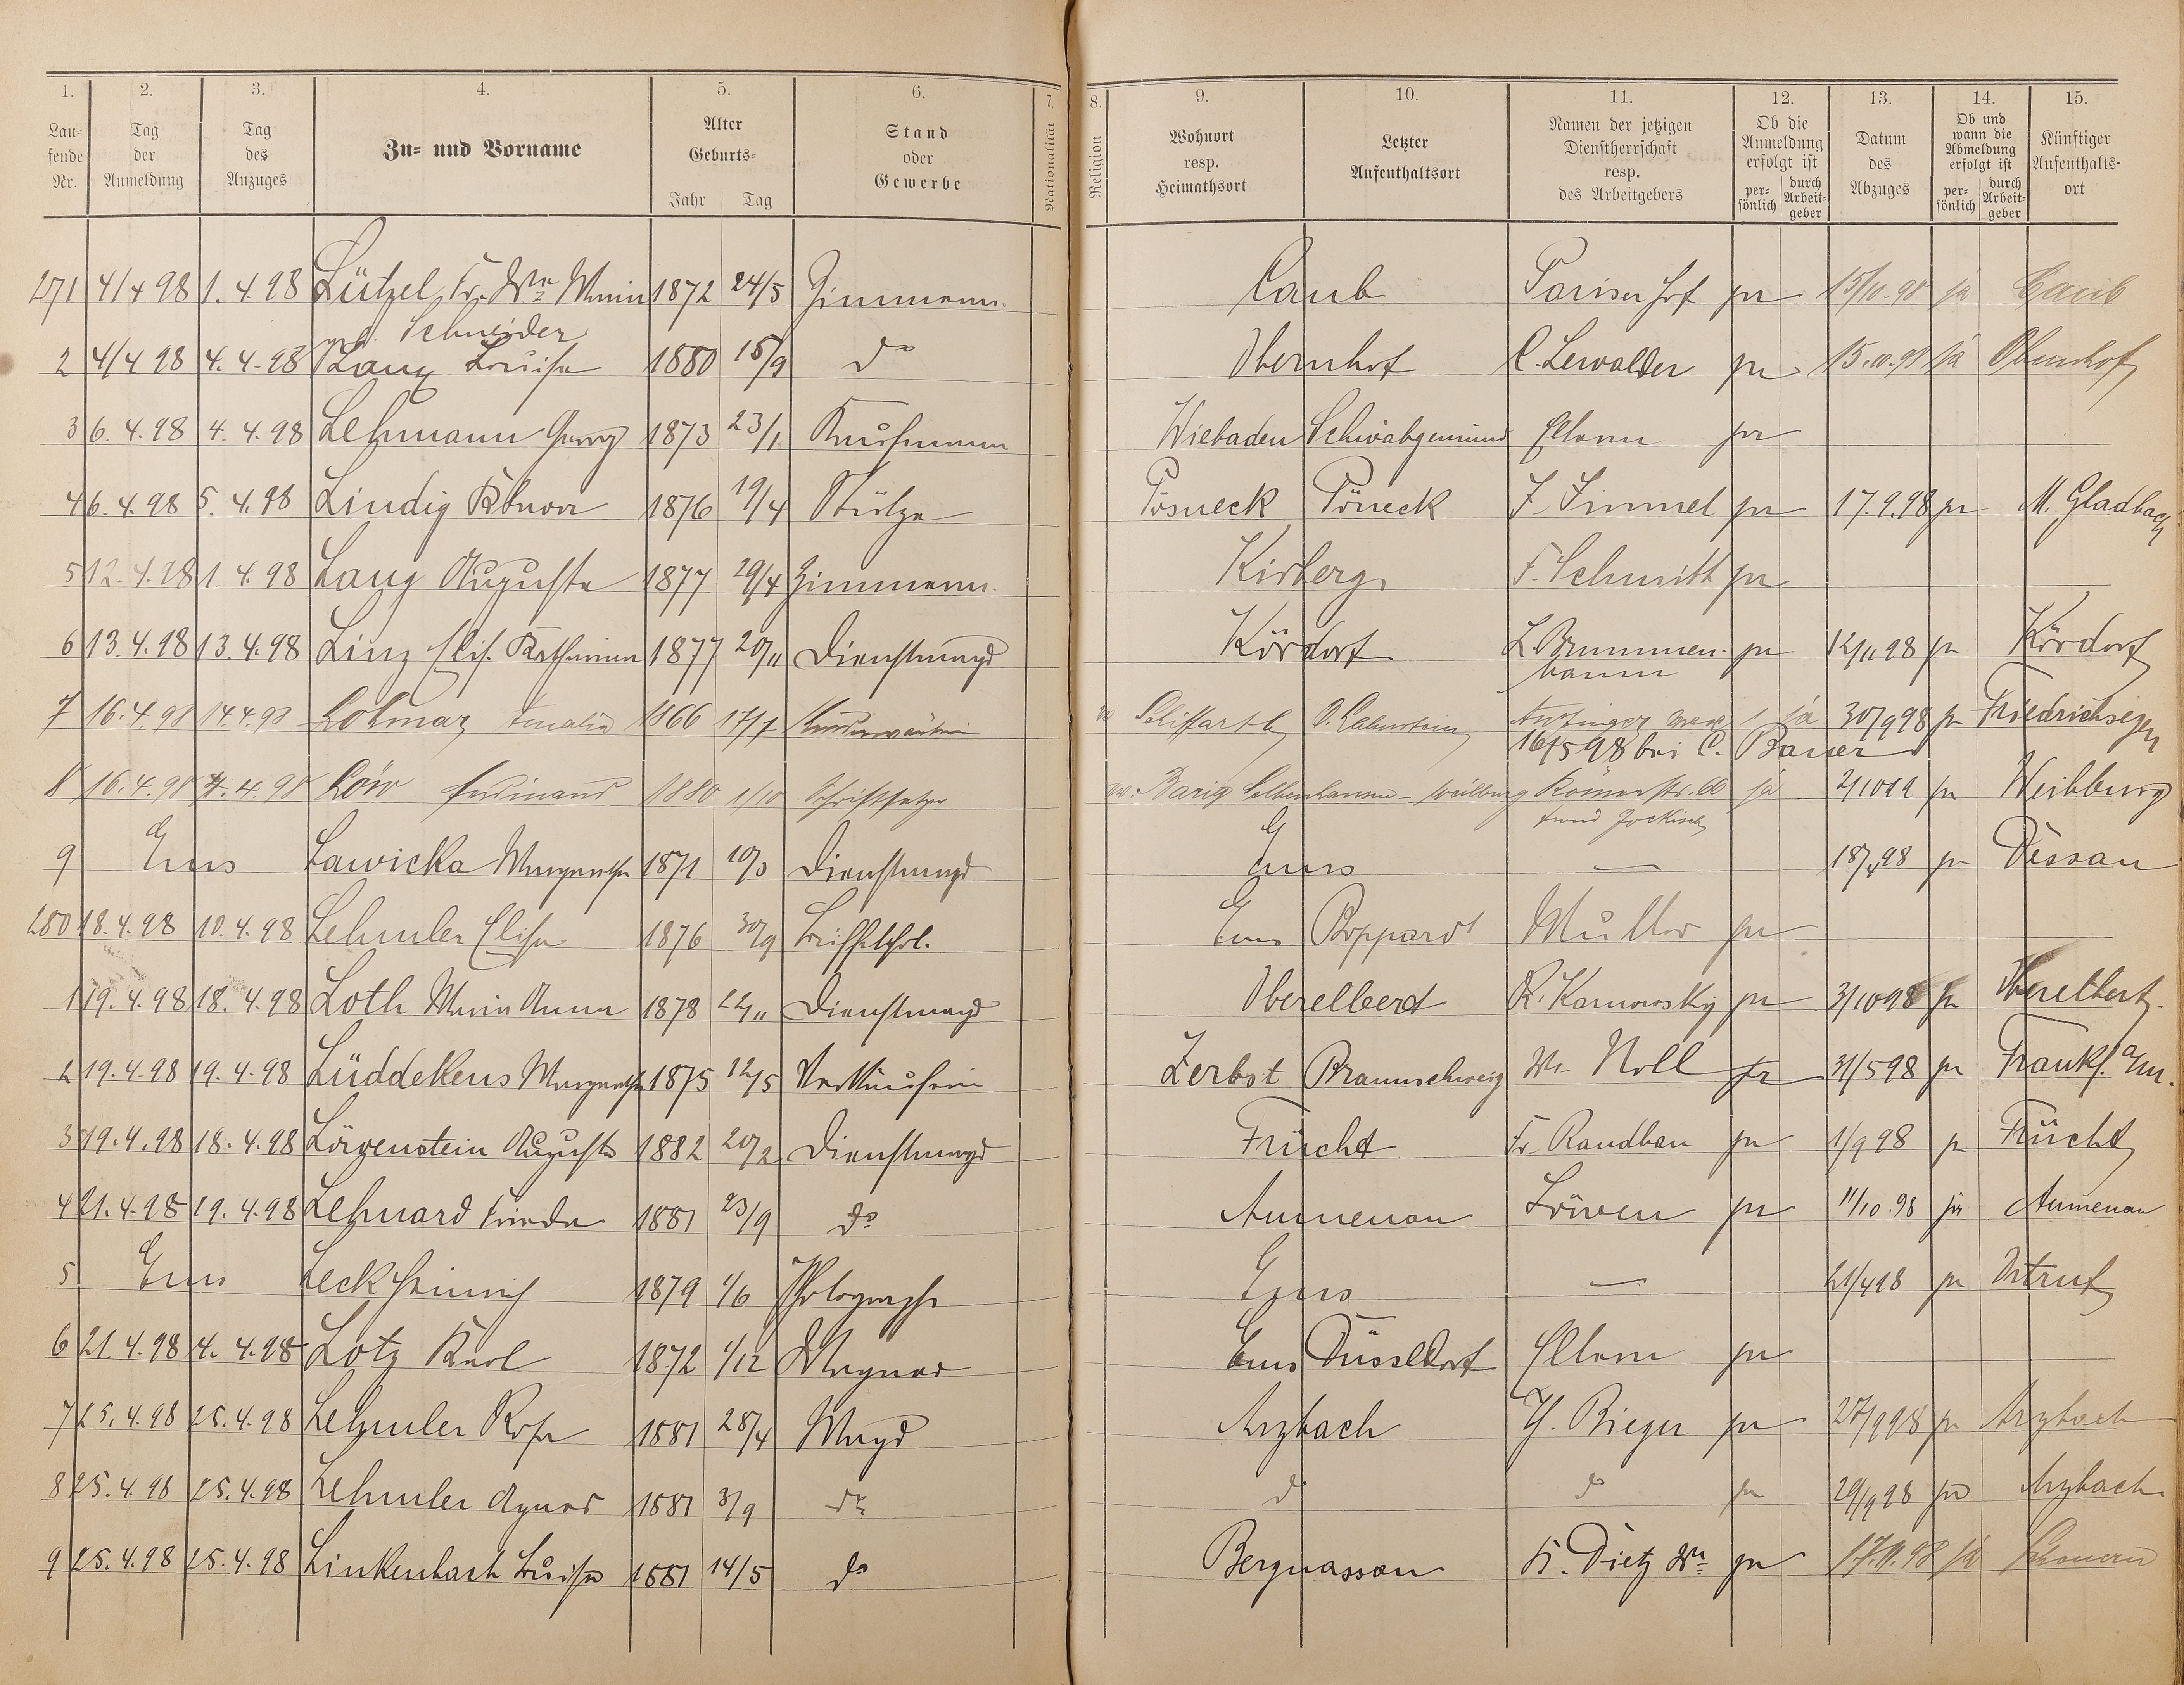 1. 2. 3. 4. 5. 6. 7. 8. 9. 10. 11. 12. 13. 14. 15.
Lau-
fende
Nr.
Tag
der
Anmeldung
Tag
des
Anzuges
Zu- und Vorname
Alter
Geburts-
Jahr Tag
Stand
oder
Gewerbe
Nationalität
Religion
Wohnort
resp.
Heimathsort
Letzter
Aufenthaltsort
Namen der jetzigen
Dienstherrschaft
resp.
des Arbeitgebers
Ob die
Anmeldung
erfolgt ist
per-
sönlich
durch
Arbeit-
geber
Datum
des
Abzuges
Ob und
wann die
Abmeldung
erfolgt ist
per-
sönlich
durch
Arbeit-
geber
Künftiger
Aufenthalts-
ort
271 4/4 98 1. 4. 98 Lützel, Fr. Ww 1872 24/5 Zimmerm. Caub Pariser Hof ja 15/10. 98 ja Caub
Schneider
2 4/4 98 4. 4. 98 Lang Louise 1880 15/9 do Obernhof C. Lewalder ja 15.10.98 ja Obernhof
3 6. 4. 98 4. 4. 98 Lehmann Georg 1873 23/1 Kaufmann Wiebaden Schwäbgemünd Eltern ja
4 6. 4. 98 5. 4. 98 Lindig 1876 19/4 Stütze Pösneck Pöneck F. Zimmel ja 17. 9. 98 ja M. Gladbach
5 12. 4. 98 1. 4. 98 Lang Auguste 1877 29/4 Zimmerm. Kirberg F. Schmitt ja
6 13. 4. 98 13. 4. 98 Linz Elis. Katharina 1877 20/11 Dienstmagd Kördorf L. Brummen- ja 12/11 98 ja Kördorf
baum
7 16. 4. 98 14. 4. 98 Lohmar Amalie 1866 17/7 O. Lahnstein ja 30/9 98 ja Friedrichsegen
16/5 98 bei C. Bauer
8 16. 4. 98 4. 4. 98 Löw Ferdinand 1880 1/10 Schriftsetzer Weilburg Römerstr. ja ja Weilburg
9 Ems Lawicka Margarethe 1871 10/3 Dienstmagd Ems — 18/4 98 ja Dessau
280 18. 4. 98 10. 4. 98 Lehmler Elise 1876 30/9 Ems Boppard Müller ja
1 19. 4. 98 18. 4. 98 Loth Maria Anna 1878 22/11 Dienstmagd Oberelbert R. Kornowsky ja 3/10 98 ja Oberelbert
2 19. 4. 98 19. 4. 98 Lüddekens Margarethe 1875 12/5 Verkäuferin Zerbst Braunschweig Ww Noll ja 31/5 98 ja Frankf. a/m.
3 19. 4. 98 18. 4. 98 Löwenstein Auguste 1882 20/2 Dienstmagd Frücht Fr. Randhan ja 1/9 98 ja Frücht
4 21. 4. 98 19. 4. 98 Lehnard Frieda 1881 23/9 do Aumenau Löwen ja 11/10. 98 ja Aumenau
5 Ems Leck Heinrich 1879 1/6 Photograph Ems — 21/4 98 ja
6 21. 4. 98 4. 4. 98 Lotz Karl 1872 1/12 Wagner Ems Düsseldorf Eltern ja
7 25. 4. 98 25. 4. 98 Lehmler Rosa 1881 28/4 Magd Arzbach H. Rieger ja 27/9 98 ja Arzbach
8 25. 4. 98 25. 4. 98 Lehmler Agnes 1881 3/9 do do do ja 29/9 98 ja Arzbach
9 25. 4. 98 25. 4. 98 Linkenbach Louise 1881 14/5 do Bergnassau K. Dietz Ww ja 17.11.98 ja